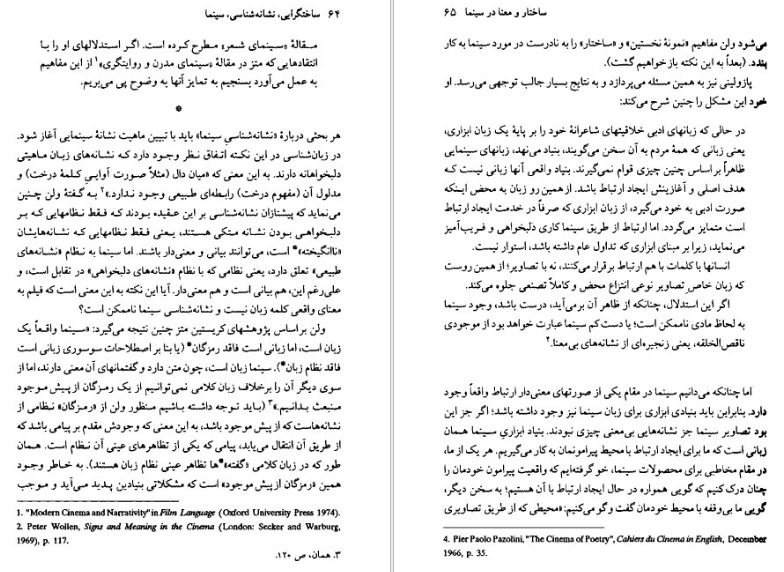 ۶۴ ساختگرایی، نشانه‌شناسی، سینما
مـقالهٔ «سـینمای شـعر» مـطرح کـرده است. اگـر استدلالهای او را بـا
انتقادهایی که متز در مقالهٔ «سینمای مدرن و روایتگری»۱ از این مفاهیم
به عمل می‌آورد بسنجیم به تمایز آنها به وضوح پی می‌بریم.
*
هر بحثی دربارهٔ «نشانه‌شناسیِ سینما» باید با تبیین ماهیت نشانهٔ سینمایی آغاز شود.
در زبان‌شناسی در این نکته اتفاق نـظر وجـود دارد کـه نشـانه‌های زبـان مـاهیتی
دلبخواهانه دارند. به این معنی که «میان دال (مثلاً صورت آوایـیِ کـلمهٔ درخت) و
مدلول آن (مفهوم درخت) رابطه‌ای طبیعی وجود نـدارد.»۲ بـه گـفتهٔ ولن چـنین
می‌نماید که پیشتازان نشانه‌شناسی بر این عـقیده بـودند کـه فـقط نـظامهایی کـه بـر
دلبـخواهـی بـودن نشـانه مـتکی هستند، یـعنی فـقط نظامهایی کـه نشـانه‌هایشان
«ناانگیخته»* است، می‌توانند بیانی و معنی‌دار باشند. اما سینما به نظام «نشـانه‌های
طبیعی» تعلق دارد، یعنی نظامی که با نظام «نشانه‌های دلبخواهی» در تقابل است، و
علی‌رغم این، هم بیانی است و هم معنی‌دار. آیا این نکته به این معنی است که فیلم به
معنای واقعی کلمه زبان نیست و نشانه‌شناسی سینما ناممکن است؟
ولن بر اساس پژوهشهای کریستین متز چنین نتیجه می‌گیرد: «سـینما واقـعاً یک
زبان است، اما زبانی است فاقد رمزگان* (یا بنا بر اصطلاحات سوسوری زبانی است
فاقد نظام زبان*). سینما زبان است، چون متن دارد و گفتمانهای آن معنی دارند، اما از
سوی دیگر آن را برخلاف زبان کلامی نمی‌توانیم از یک رمـزگان از پـیش مـوجود
منبعث بدانـیم.»۳ (بـاید تـوجه داشـته بـاشیم مـنظور ولن از «رمـزگان» نـظامی از
نشانه‌هاست که از پیش موجود باشد، به این معنی که وجودش مقدم بر پیامی باشد که
از طریق آن انتقال می‌یابد، پیامی که یکی از تظاهرهای عینی آن نـظام است. هـمان
طور که در زبان کلامی «گفته»*ها تظاهر عینی نظام زبان هستند). به خـاطر وجـود
همین «رمزگان از پیش موجود» است که مشکلاتی بنیادین پـدید مـی‌آید و مـوجب
1. "Modern Cinema and Narrativity" in Film Language (Oxford University Press 1974).
2. Peter Wollen, Signs and Meaning in the Cinema (London: Secker and Warburg,
1969), p. 117.
۳. همان، ص ۱۲۰.
ساختار و معنا در سینما ۶۵
می‌شود ولن مفاهیم «نمونهٔ نخستین» و «ساختار» را به نادرست در مورد سینما به کار
بندد. (بعداً به این نکته باز خواهیم گشت).
پازولینی نیز به همین مسئله می‌پردازد و به نتایج بسیار جالب توجهی می‌رسد. او
خود این مشکل را چنین شرح می‌کند:
در حالی که زبانهای ادبی خلاقیتهای شاعرانهٔ خود را بر پایهٔ یک زبان ابزاری،
یعنی زبانی که همهٔ مردم به آن سخن می‌گویند، بنیاد می‌نهد، زبانهای سینمایی
ظاهراً بر اساس چنین چیزی قوام نمی‌گیرند. بنیاد واقعی آنها زبانی نیست کـه
هدف اصلی و آغازینش ایجاد ارتباط باشد. از همین رو زبان به محض ایـنکه
صورت ادبی به خود می‌گیرد، از زبان ابزاری که صرفاً در خدمت ایجاد ارتباط
است متمایز می‌گردد. اما ارتباط از طریق سینما کاری دلبخواهی و فریب‌آمیز
می‌نماید، زیرا بر مبنای ابزاری که تداول عام داشته باشد، استوار نیست.
انسانها با کلمات با هم ارتباط برقرار می‌کنند، نه با تصاویر؛ از همین روست
که زبان خاصِ تصاویر نوعی انتزاع محض و کاملاً تصنعی جلوه می‌کند.
اگر این استدلال، چنانکه از ظاهر آن برمی‌آید، درست باشد، وجود سینما
به لحاظ مادی ناممکن است؛ یا دست کم سینما عبارت خواهد بود از موجودی
ناقص‌الخلقه، یعنی زنجیره‌ای از نشانه‌های بی‌معنا.۴
اما چنانکه می‌دانیم سینما در مقام یکی از صورتهای معنی‌دار ارتباط واقعاً وجود
دارد. بنابراین باید بنیادی ابزاری برای زبان سینما نیز وجود داشته باشد؛ اگر جز این
بود تصاویر سینما جز نشانه‌هایی بی‌معنی چیزی نبودند. بنیاد ابزاریِ سینما همان
زبانی است که ما برای ایجاد ارتباط با محیط پیرامونمان به کار می‌گیریم. هر یک از ما،
در مقام مخاطبی برای محصولات سینما، خو گرفته‌ایم که واقعیت پیرامون خودمان را
چنان درک کنیم که گویی همواره در حال ایجاد ارتباط با آن هستیم؛ به سخن دیگر،
گویی ما بی‌وقفه با محیط خودمان گفت و گو می‌کنیم: «محیطی که از طریق تصاویری
4. Pier Paolo Pazolini, "The Cinema of Poetry", Cahiers du Cinema in English, December
1966, p. 35.